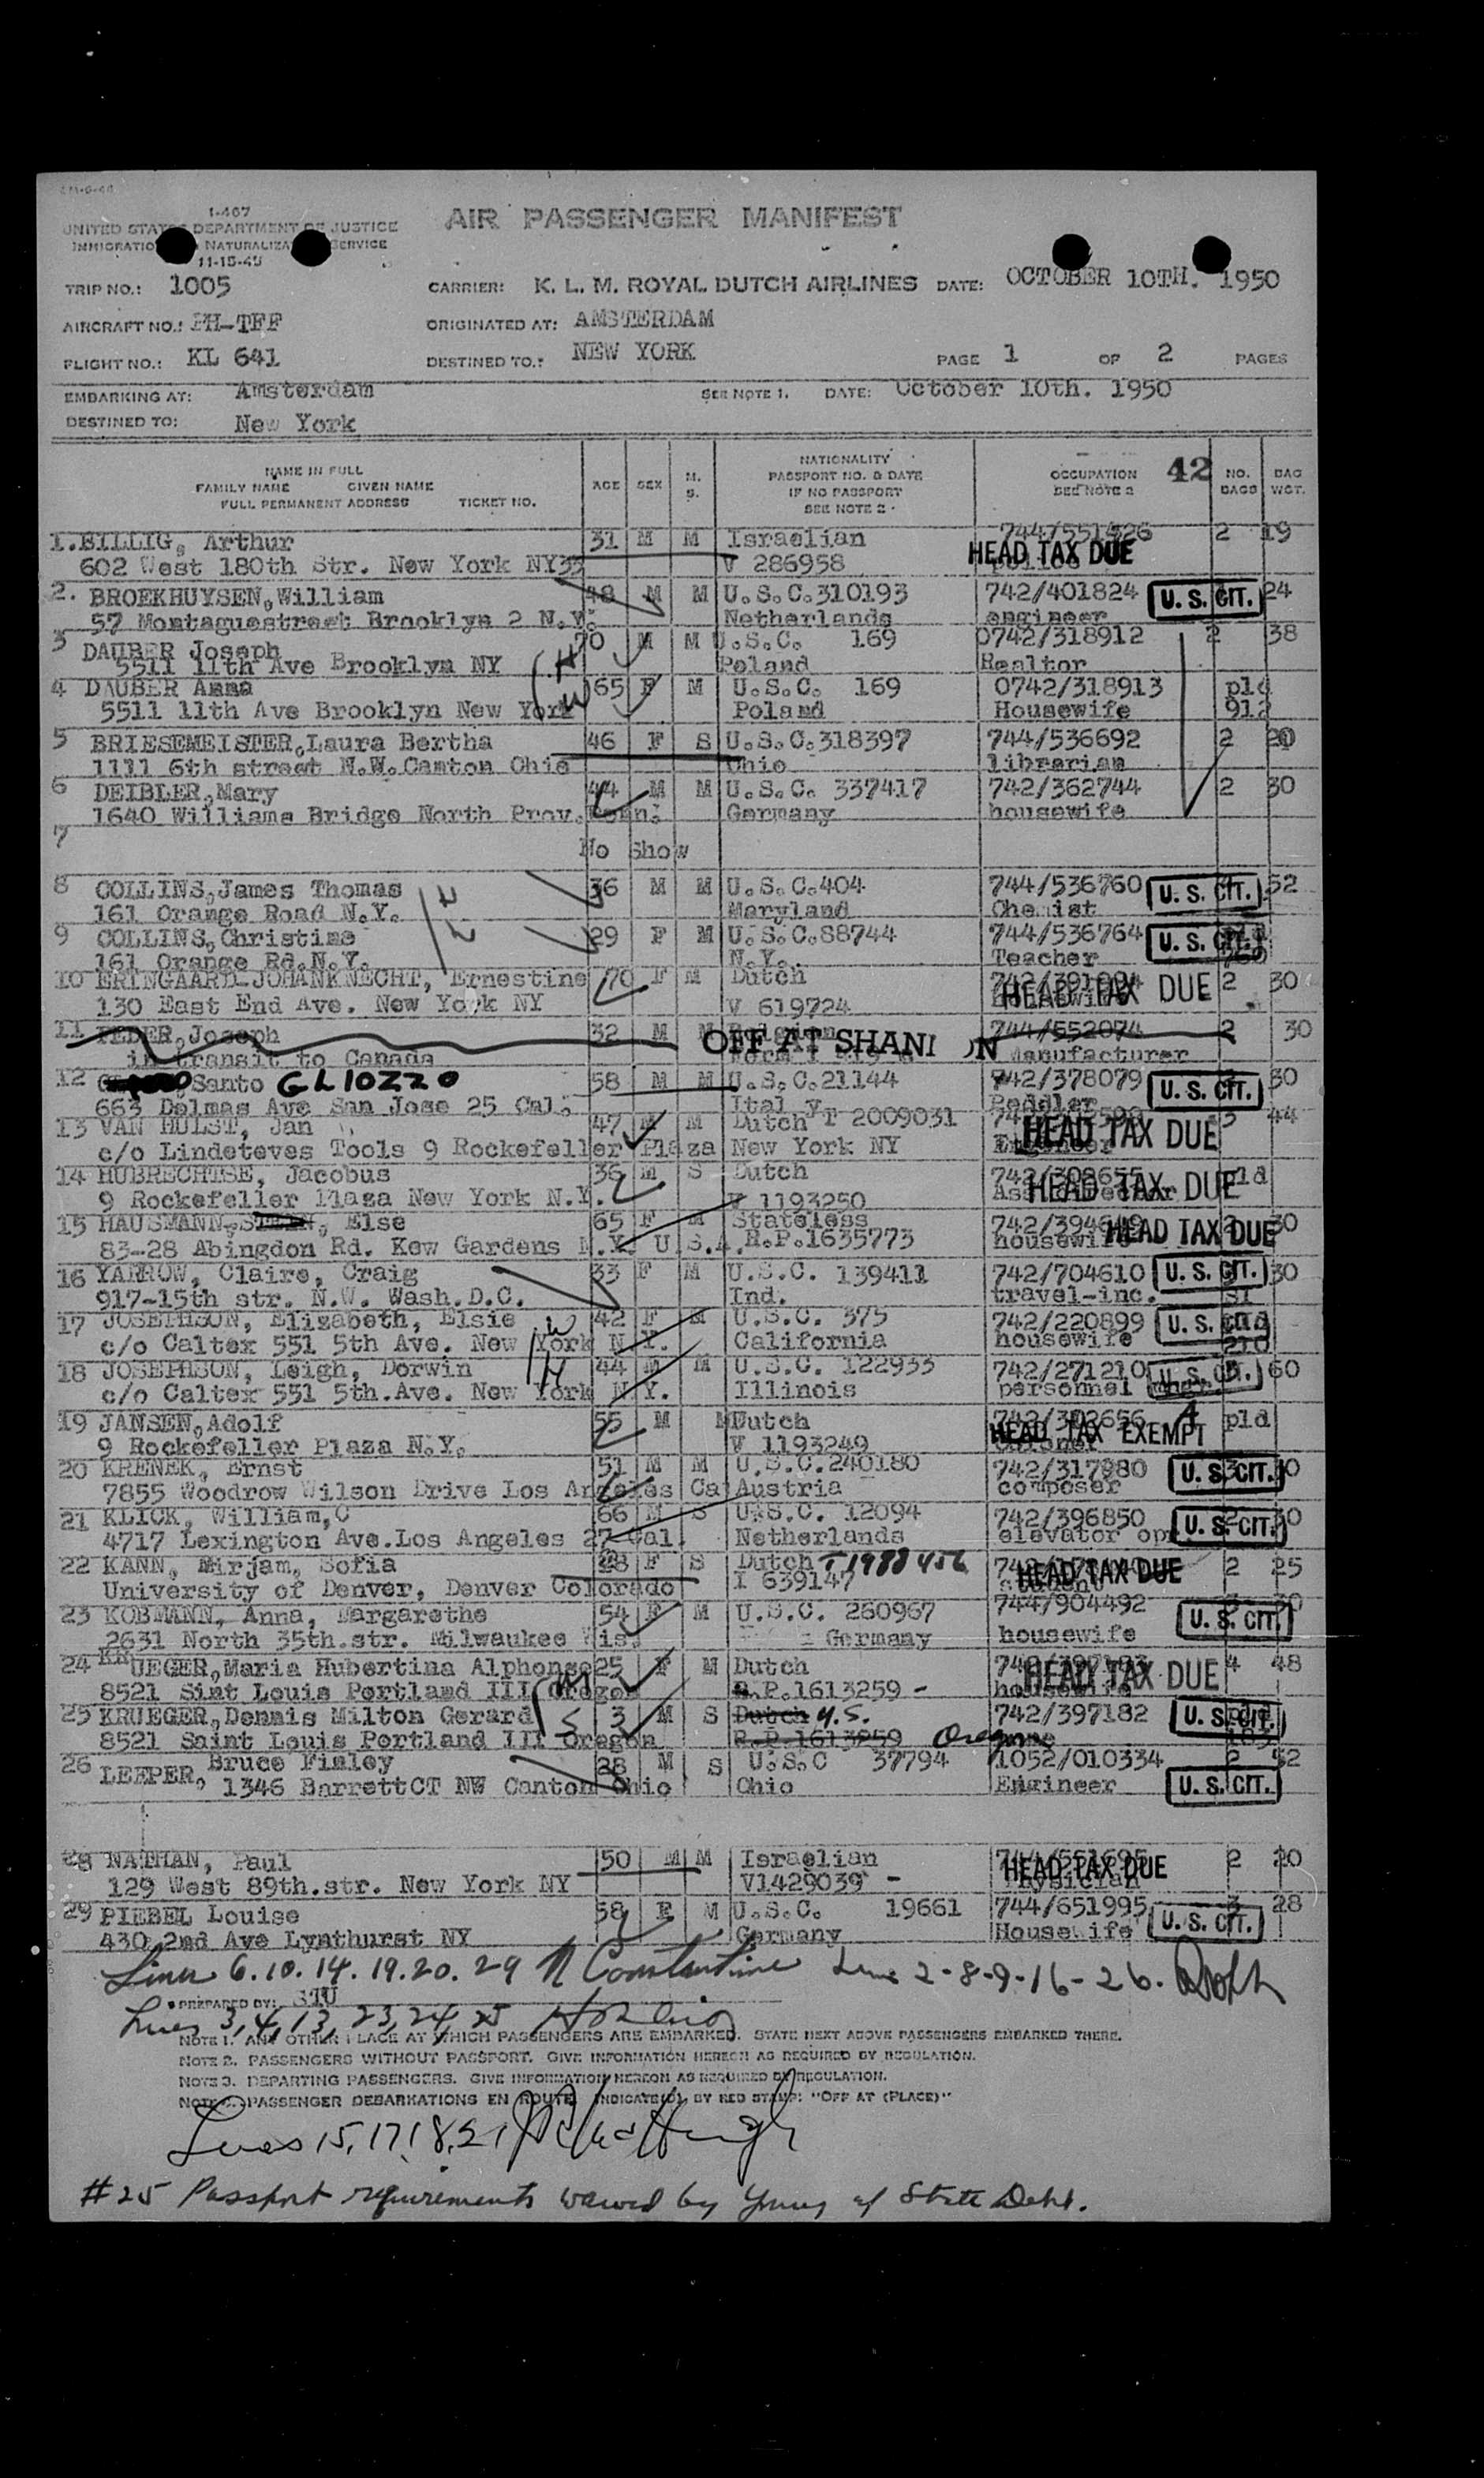 1-467
UNITED STATES DEPARTMENT OF JUSTICE
IMMIGRATION NATURALIZATION SERVICE
11-15-49
AIR PASSENGER MANIFEST
TRIP NO.: 1005 CARRIER: K. L. M. ROYAL DUTCH AIRLINES DATE: OCTOBER 10TH. 1950
AIRCRAFT NO.: PH-TFF ORIGINATED AT: AMSTERDAM
FLIGHT NO.: KL 641 DESTINED TO.: NEW YORK PAGE 1 OF 2 PAGES
EMBARKING AT: Amsterdam SEE NOTE 1. DATE: October 10th. 1950
DESTINED TO: New York
NAME IN FULL
FAMILY NAME GIVEN NAME
FULL PERMANENT ADDRESS TICKET NO.
AGE SEX M. S.
NATIONALITY
PASSPORT NO. & DATE
IF NO PASSPORT
SEE NOTE 2
OCCUPATION
SEE NOTE 2
42
NO. BAGS
BAG WGT.
1. BILLIG, Arthur 31 M M Israelian 744/551426 2 19
602 West 180th Str. New York NY33 V 286958 HEAD TAX DUE
2. BROEKHUYSEN, William 48 M M U.S.C.310193 742/401824 U. S. CIT. 24
57 Montaguestreet Brooklyn 2 N.Y. Netherlands engineer
3 DAUBER Joseph 70 M M U.S.C. 169 0742/318912 2 38
5511 11th Ave Brooklyn NY Poland Realtor
4 DAUBER Anna 65 F M U.S.C. 169 0742/318913 pld
5511 11th Ave Brooklyn New York Poland Housewife 912
5 BRIESEMEISTER, Laura Bertha 46 F S U.S.C.318397 744/536692 2 20
1111 6th street N.W. Canton Ohio Ohio librarian
6 DEIBLER, Mary 44 M M U.S.C. 337417 742/362744 2 30
1640 Williams Bridge North Prov. Penn. Germany housewife
7
No Show
8 COLLINS, James Thomas 36 M M U.S.C.404 744/536760 U. S. CIT. 52
161 Orange Road N.Y. Maryland Chemist
9 COLLINS, Christine 29 F M U.S.C.88744 744/536764 U. S. CIT.
161 Orange Rd.N.Y. N.Y. Teacher
10 ERINGAARD-JOHANKNECHT, Ernestine 70 F M Dutch 2 30
130 East End Ave. New York NY V 619724 HEAD TAX DUE
11 FEDER, Joseph 32 M M 744/552074 2 30
in transit to Canada OFF AT SHANNON Manufacturer
12 Santo GLIOZZO 58 M M U.S.C.21144 742/378079 U. S. CIT. 30
663 Delmas Ave San Jose 25 Cal. Italy Peddler
13 VAN HULST, Jan 47 M M Dutch T 2009031 3 44
c/o Lindeteves Tools 9 Rockefeller Plaza New York NY HEAD TAX DUE
14 HUBRECHTSE, Jacobus 36 M S Dutch 742/308655 pld
9 Rockefeller Plaza New York N.Y. V 1193250 HEAD TAX DUE
15 HAUSMANN, Else 65 F M Stateless 742/394649 HEAD TAX DUE 30
83-28 Abingdon Rd. Kew Gardens N.Y. U.S.A. R.P.1635773 housewife
16 YARROW, Claire, Craig 33 F M U.S.C. 139411 742/704610 U. S. CIT. 30
917-15th str. N.W. Wash.D.C. Ind. travel-inc.
17 JOSEPHSON, Elizabeth, Elsie W 42 F M U.S.C. 375 742/220899 U. S. CIT.
c/o Caltex 551 5th Ave. New York N.Y. California housewife 210
18 JOSEPHSON, Leigh, Dorwin H 44 M M U.S.C. 122933 742/271210 U. S. CIT. 60
c/o Caltex 551 5th.Ave. New York N.Y. Illinois personnel
19 JANSEN, Adolf 55 M M Dutch 742/302656 pld
9 Rockefeller Plaza N.Y. V 1193249 HEAD TAX EXEMPT
20 KRENEK, Ernst 51 M M U.S.C.240180 742/317980 U. S. CIT.
7855 Woodrow Wilson Drive Los Angeles Cal Austria composer
21 KLICK, William, C 66 M S U.S.C. 12094 742/396850 U. S. CIT.
4717 Lexington Ave.Los Angeles 27 Cal. Netherlands elevator op
22 KANN, Mirjam, Sofia 28 F S Dutch T 1988456 HEAD TAX DUE 2 25
University of Denver, Denver Colorado I 639147 student
23 KOBMANN, Anna, Margarethe 54 F M U.S.C. 260967 744/904492 U. S. CIT. 30
2631 North 35th.str. Milwaukee Wis. Germany housewife
24 KRUEGER, Maria Hubertina Alphonse 25 F M Dutch HEAD TAX DUE 4 48
8521 Sint Louis Portland III Oregon R.P.1613259 -
25 KRUEGER, Dennis Milton Gerard 3 M S Dutch U.S. 742/397182 U. S. CIT.
8521 Saint Louis Portland III Oregon R.P.1613259 Oregon
26 LEEPER, Bruce Finley 28 M S U.S.C 37794 1052/010334 2 32
1346 BarrettCT NW Canton Ohio Ohio Engineer U. S. CIT.
28 NATHAN, Paul 50 M M Israelian HEAD TAX DUE 2 20
129 West 89th.str. New York NY V1429039 -
29 PIEBEL Louise 58 F M U.S.C. 19661 744/651995 3 28
430 2nd Ave Lynthurst NY Germany Housewife U. S. CIT.
Lines 6.10.14.19.20.29 N Constantine Line 2-8-9-16-26.
PREPARED BY: STU
Lines 3,4,13,23,24,25
NOTE 1. ANY OTHER PLACE AT WHICH PASSENGERS ARE EMBARKED. STATE NEXT ABOVE PASSENGERS EMBARKED THERE.
NOTE 2. PASSENGERS WITHOUT PASSPORT. GIVE INFORMATION HEREON AS REQUIRED BY REGULATION.
NOTE 3. DEPARTING PASSENGERS. GIVE INFORMATION HEREON AS REQUIRED BY REGULATION.
NOTE PASSENGER DEBARKATIONS EN ROUTE. INDICATE(D) BY RED STAMP: "OFF AT (PLACE)"
Lines 15,17,18,21
#25 Passport requirements waived by Young of State Dept.